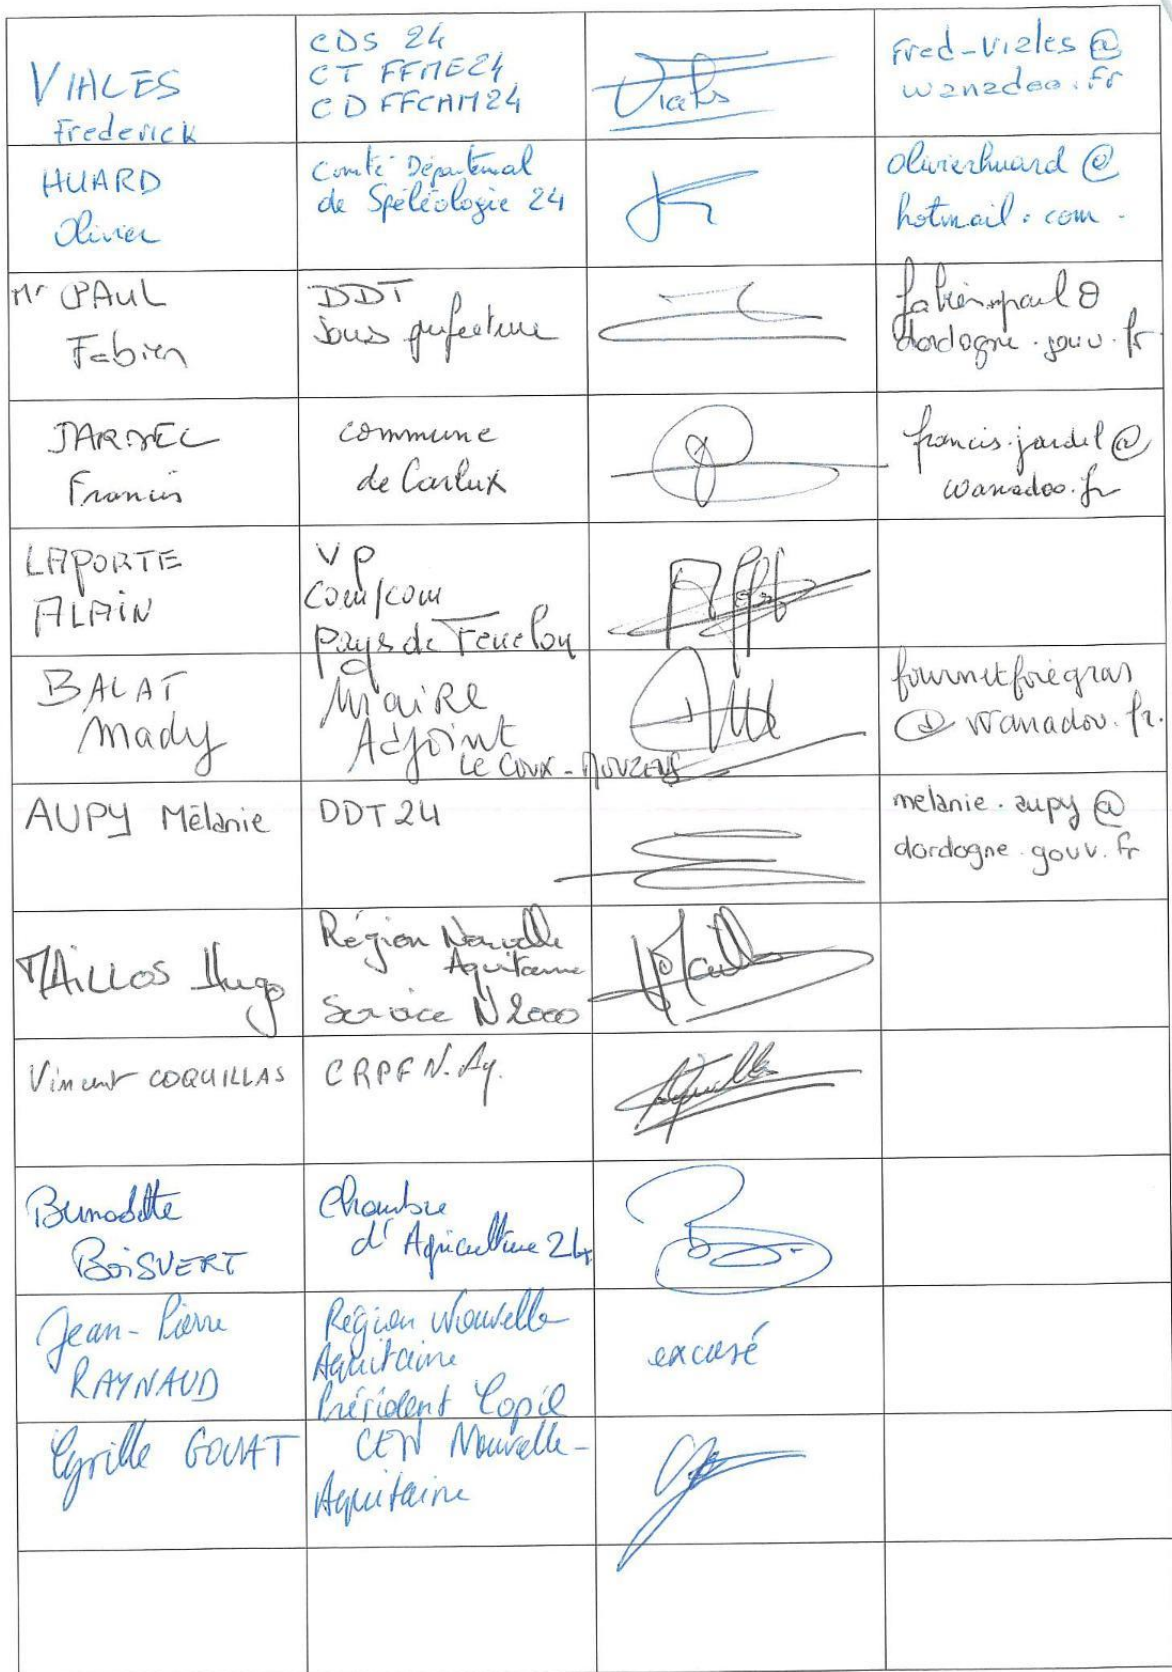 VIALES
Frederick
CDS 24
CT FFME24
CD FFCAM24
Viales
fred-viales @
wanadoo.fr
HUARD
Olivier
Comité Départemal
de Spéléologie 24
olivierhuard @
hotmail.com.
Mr PAUL
Fabien
DDT
Sous prefecture
fabien.paul @
dordogne.gouv.fr
JARDEL
Francis
commune
de Carlux
francis.jardel @
wanadoo.fr
LAPORTE
ALAIN
VP
Com/com
Pays de Fenelon
BALAT
Mady
Maire
Adjoint
LE COUX - MOUZENS
fournetfoiegras
@ wanadoo.fr.
AUPY Mélanie
DDT 24
melanie.aupy @
dordogne.gouv.fr
MAILLOS Hugo
Région Nouvelle
Aquitaine
Service N2000
Vincent COQUILLAS
CRPF N.Aq.
Bernadette
BOISVERT
Chambre
d'Agriculture 24
Jean-Pierre
RAYNAUD
Région Nouvelle
Aquitaine
Président Copil
excusé
Cyrille GOUAT
CEN Nouvelle-
Aquitaine